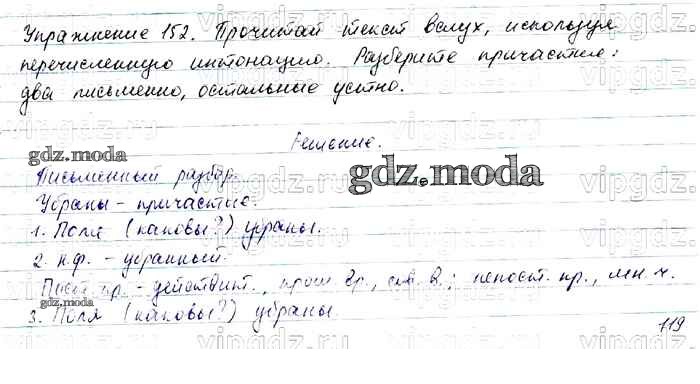 Упражнение 152. Прочитай текст вслух, используя
перечисленную интонацию. Разберите причастие:
два письменно, остальные устно.
Решение.
gdz.moda
gdz.moda
Письменный разбор.
Убраны - причастие.
1. Поля (каковы?) убраны.
2. н.ф. - убранный.
Пост. пр. - действит., прош. вр., сов. в.; непост. пр., мн. ч.
gdz.moda
3. Поля (каковы?) убраны.
119